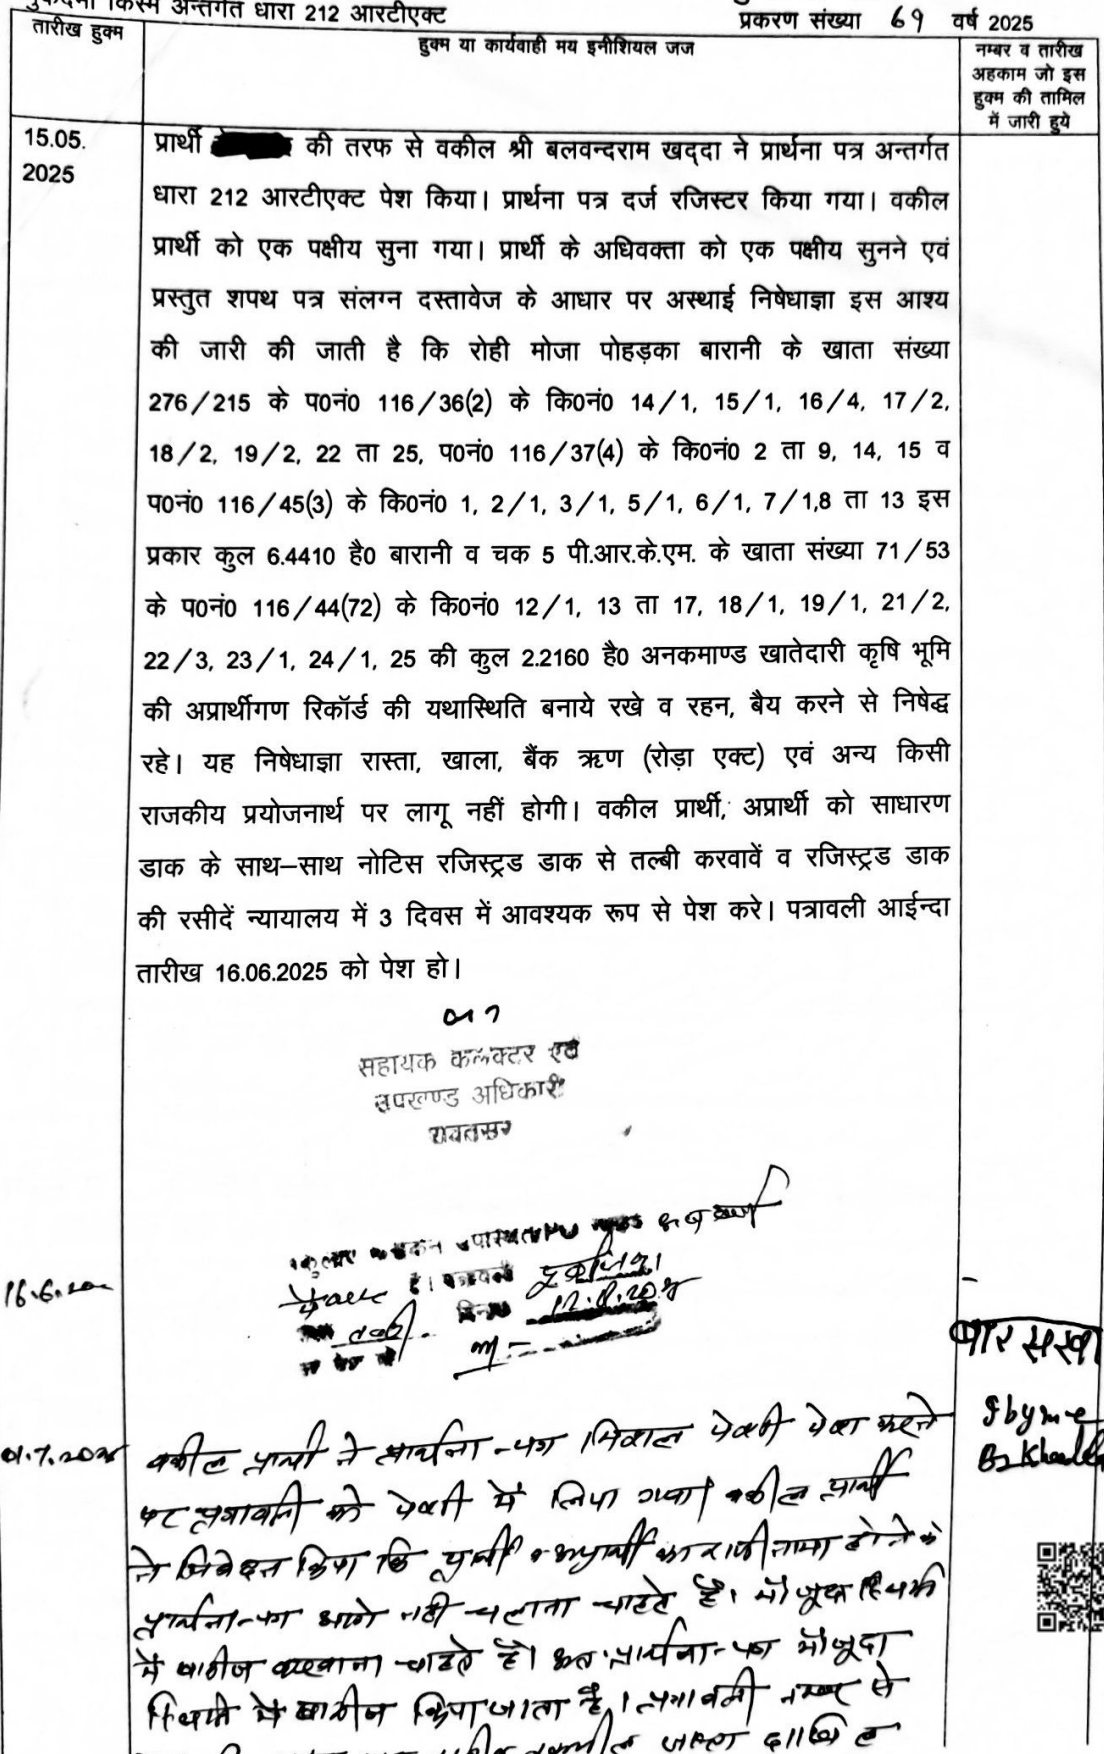 अन्तर्गत धारा 212 आरटीएक्ट
प्रकरण संख्या 69 वर्ष 2025
तारीख हुक्म
हुक्म या कार्यवाही मय इनीशियल जज
नम्बर व तारीख
अहकाम जो इस
हुक्म की तामिल
में जारी हुये
15.05.
2025
प्रार्थी की तरफ से वकील श्री बलवन्दराम खद्दा ने प्रार्थना पत्र अन्तर्गत
धारा 212 आरटीएक्ट पेश किया। प्रार्थना पत्र दर्ज रजिस्टर किया गया। वकील
प्रार्थी को एक पक्षीय सुना गया। प्रार्थी के अधिवक्ता को एक पक्षीय सुनने एवं
प्रस्तुत शपथ पत्र संलग्न दस्तावेज के आधार पर अस्थाई निषेधाज्ञा इस आश्य
की जारी की जाती है कि रोही मोजा पोहड़का बारानी के खाता संख्या
276/215 के प0नं0 116/36(2) के कि0नं0 14/1, 15/1, 16/4, 17/2,
18/2, 19/2, 22 ता 25, प0नं0 116/37(4) के कि0नं0 2 ता 9, 14, 15 व
प0नं0 116/45(3) के कि0नं0 1, 2/1, 3/1, 5/1, 6/1, 7/1,8 ता 13 इस
प्रकार कुल 6.4410 है0 बारानी व चक 5 पी.आर.के.एम. के खाता संख्या 71/53
के प0नं0 116/44(72) के कि0नं0 12/1, 13 ता 17, 18/1, 19/1, 21/2,
22/3, 23/1, 24/1, 25 की कुल 2.2160 है0 अनकमाण्ड खातेदारी कृषि भूमि
की अप्रार्थीगण रिकॉर्ड की यथास्थिति बनाये रखे व रहन, बैय करने से निषेद्ध
रहे। यह निषेधाज्ञा रास्ता, खाला, बैंक ऋण (रोड़ा एक्ट) एवं अन्य किसी
राजकीय प्रयोजनार्थ पर लागू नहीं होगी। वकील प्रार्थी, अप्रार्थी को साधारण
डाक के साथ–साथ नोटिस रजिस्ट्रड डाक से तल्बी करवावें व रजिस्ट्रड डाक
की रसीदें न्यायालय में 3 दिवस में आवश्यक रूप से पेश करे। पत्रावली आईन्दा
तारीख 16.06.2025 को पेश हो।
सहायक कलक्टर एवं
उपखण्ड अधिकारी
रावतसर
वकील प्रार्थी ने प्रार्थना-पत्र पेशी पेश करने
पर पत्रावली को पेशी में लिया गया। वकील प्रार्थी
ने निवेदन किया कि प्रार्थी व अप्रार्थी का राजीनामा होने के
प्रार्थना-पत्र आगे नहीं चलाना चाहते है। मौजूदा स्थिति
में खारीज करवाना चाहते है। अतः प्रार्थना-पत्र मौजूदा
स्थिति में खारीज किया जाता है। पत्रावली नम्बर से